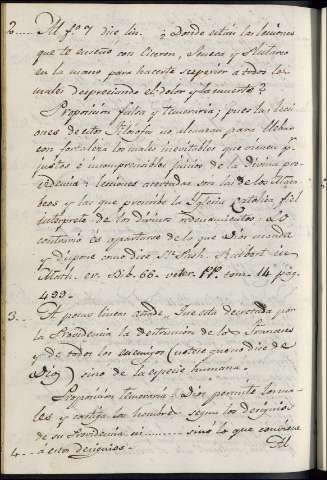 2.... Al fº 7 dice lin. ¿Donde están las lecciones
que te enseñó con Ciceron, Seneca y Plutarco
en la mano para hacerte superior a todos los
males despreciando el dolor y la muerte?
Proposicion falsa y temeraria; pues las lecci
ones de estos Filosofos no alcanzan para llebar
con fortaleza los males inevitables que vienen pr
justos e incomprensibles juicios de la divina pro
videncia: lecciones acertadas son las de los
y las que prescribe la Iglesia Catolica fiel
interprete de los divinos Lo
contrario es apartarse de lo que Dios manda
y dispone como dice Sn Pasch. Radbert in
Math. en Bib. veter. PP. tom. 14 pag.
499.
3.... A pocas lineas añade, fue esta decretada por
la Providencia la destruccion de los Tiranos
y de todos los enemigos (nótese que no dice de
Dios) sino de la especie humana.
Proposicion temeraria: Dios permite los ma-
les y castiga los hombres segun los designios
de su Providencia sinó lo que conviene
á estos designios.
4...... Al